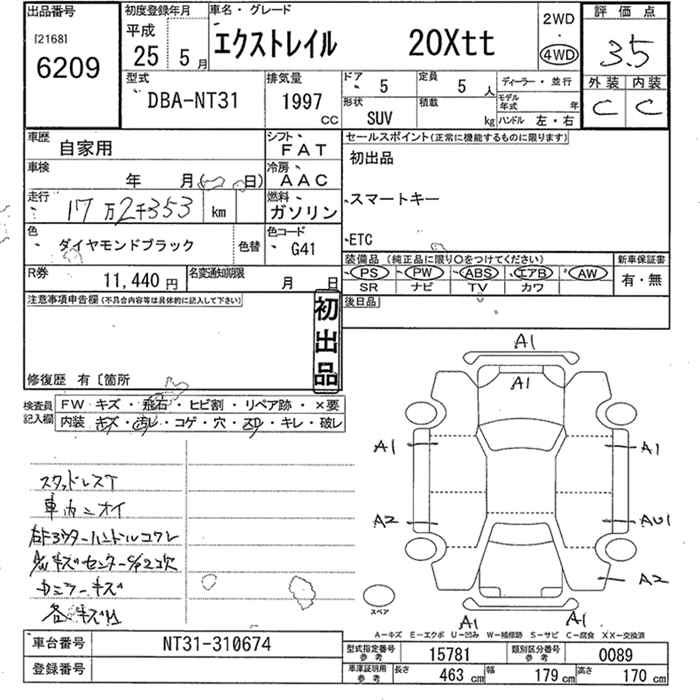 出品番号
[2168]
6209
初度登録年月
平成
25 5月
車名・グレード
エクストレイル 20Xtt
2WD
・
4WD
評価点
3.5
外装 内装
C C
型式
DBA-NT31
排気量
1997
cc
ドア
5
定員
5人
ディーラー・並行
形状
SUV
積載
kg
モデル年式 年
ハンドル 左・右
車歴
自家用
シフト
FAT
セールスポイント(正常に機能するものに限ります)
初出品
スマートキー
ETC
車検
年 月( 日)
冷房
AAC
走行
17万2千353 km
燃料
ガソリン
色
ダイヤモンドブラック
色替
色コード
G41
装備品(純正品に限り○をつけてください)
新車保証書
PS PW ABS エアB AW
SR ナビ TV カワ
有・無
R券
11,440円
名変通知期限
月 日
後日品
注意事項申告欄(不具合内容等は具体的に記入して下さい)
初出品
修復歴 有〔箇所
検査員
記入欄
FW キズ・飛石・ヒビ割・リペア跡・×要
内装 キズ・汚レ・コゲ・穴・スレ・キレ・破レ
スタッドレスT
車内ニオイ
キズ
A1
A1
A1
A1
A2
AU1
A2
A1
A1
スペア
A-キズ E-エクボ U-凹み W-補修跡 S-サビ C-腐食 XX-交換済
車台番号
NT31-310674
登録番号
型式指定番号
参考
15781
類別区分番号
参考
0089
車庫証明用
参考
長さ 463cm 幅 179cm 高さ 170cm